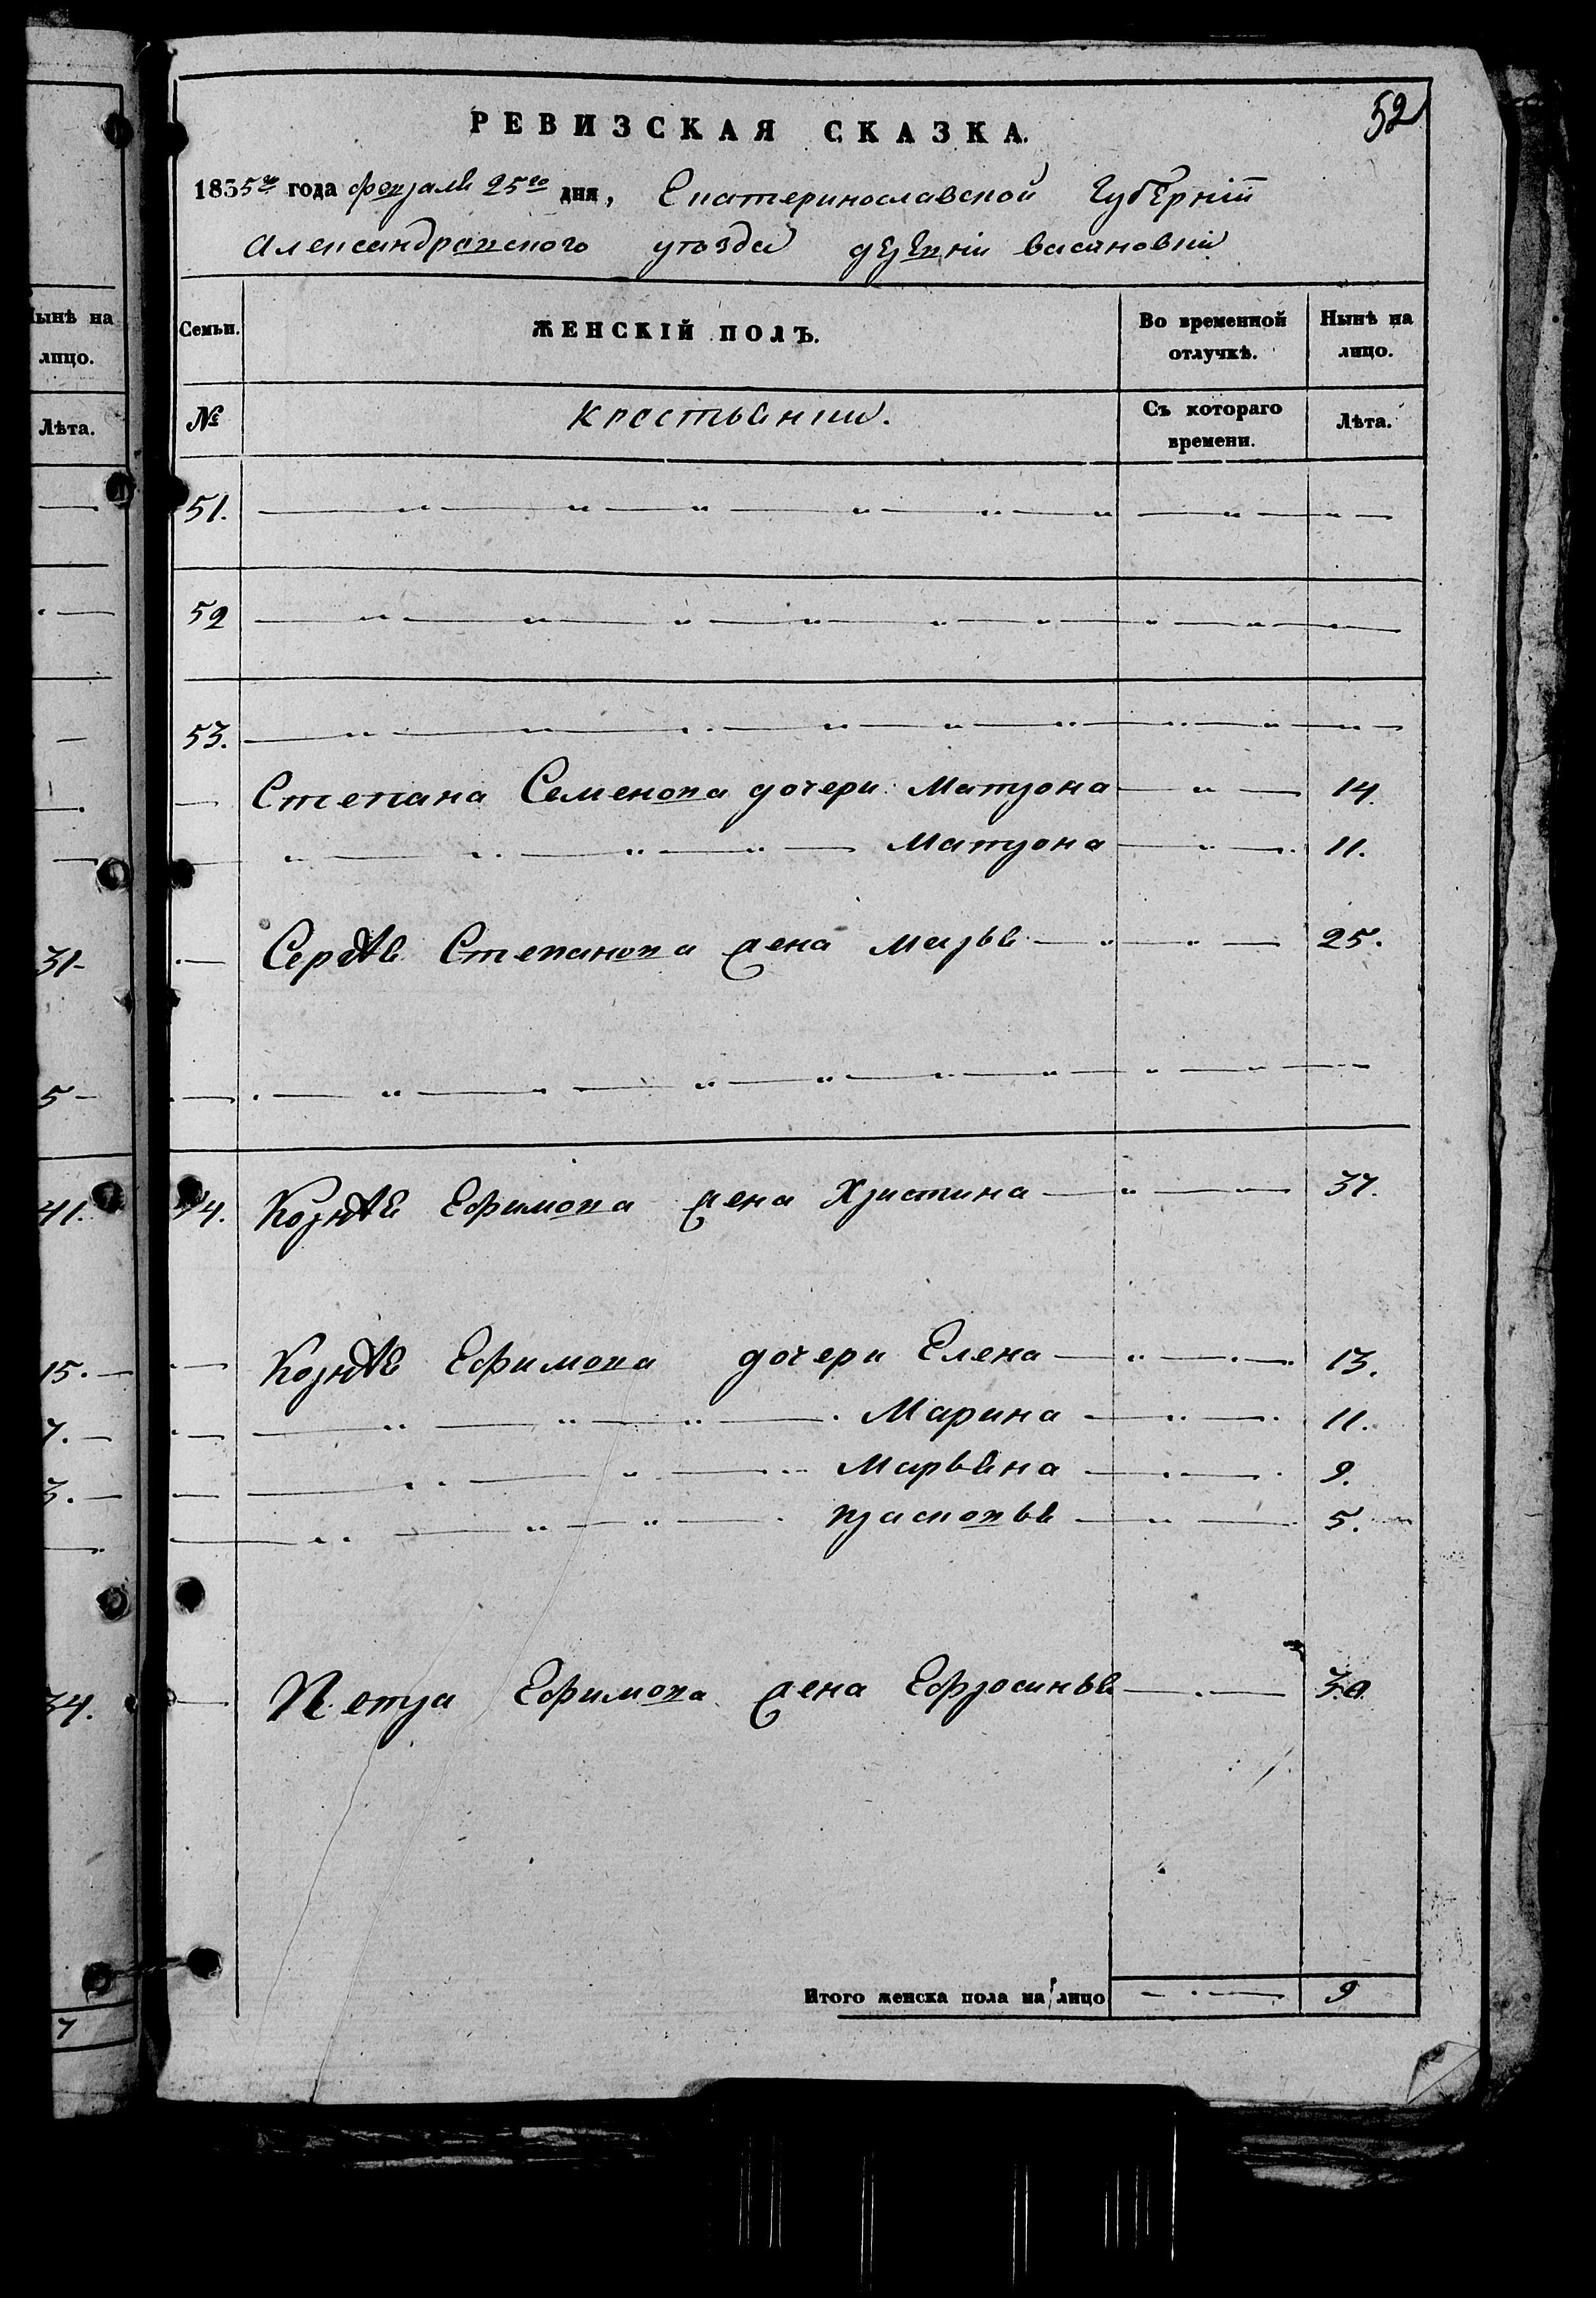 52
РЕВИЗСКАЯ СКАЗКА.
1835го года февраля 25го дня, Екатеринославской Губерніи
Александровского уѣзда деревни Васиновки
Нынѣ на
лицо.
Лѣта.
31-
5-
41.
15.—
7.—
3.—
34.
7
Семьи.
ЖЕНСКІЙ ПОЛЪ.
Во временной
отлучкѣ.
Нынѣ на
лицо.
№
Крестьянки.
Съ котораго
времени.
Лѣта.
51. — „ — „ — „ — „ — „ —
52 — „ — „ — „ — „ — „ —
53. — „ — „ — „ — „ — „ —
— Степана Семенова дочери Матрона — „ — 14.
„ — „ — „ — „ — Матрона — „ — 11.
— Сергѣя Степанова жена Марья — „ — „ — 25.
— „ — „ — „ — „ — „ —
4. Корнѣя Ефимова жена Христина — „ — „ — 37.
— Корнѣя Ефимова дочери Елена — „ — 13.
— „ — „ — „ — Марина — „ — 11.
— „ — „ — Марьяна — „ — 9.
— „ — „ — „ — Прасковья — „ — 5.
— Петра Ефимова жена Ефросинья — „ — 30.
Итого женска пола на лицо — „ — 9